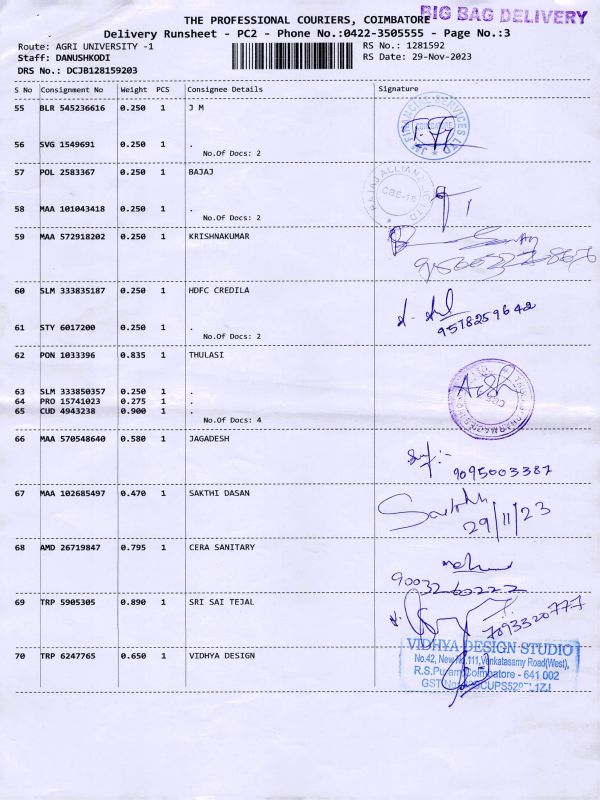 BIG BAG DELIVERY
THE PROFESSIONAL COURIERS, COIMBATORE
Delivery Runsheet - PC2 - Phone No.:0422-3505555 - Page No.:3
Route: AGRI UNIVERSITY -1 RS No.: 1281592
Staff: DANUSHKODI RS Date: 29-Nov-2023
DRS No.: DCJB128159203
S No Consignment No Weight PCS Consignee Details Signature
55 BLR 545236616 0.250 1 J M
56 SVG 1549691 0.250 1 .
No.Of Docs: 2
57 POL 2583367 0.250 1 BAJAJ
58 MAA 101043418 0.250 1 .
No.Of Docs: 2
59 MAA 572918202 0.250 1 KRISHNAKUMAR
60 SLM 333835187 0.250 1 HDFC CREDILA
61 STY 6017200 0.250 1 .
9578259642
No.Of Docs: 2
62 PON 1033396 0.835 1 THULASI
63 SLM 333850357 0.250 1 .
64 PRO 15741023 0.275 1 .
65 CUD 4943238 0.900 1 .
No.Of Docs: 4
66 MAA 570548640 0.580 1 JAGADESH
9095003387
67 MAA 102685497 0.470 1 SAKTHI DASAN
29/11/23
68 AMD 26719847 0.795 1 CERA SANITARY
90032 60222
69 TRP 5905305 0.890 1 SRI SAI TEJAL
7093320777
70 TRP 6247765 0.650 1 VIDHYA DESIGN
VIDHYA DESIGN STUDIO
No.42, New No.111, Venkatasamy Road(West),
R.S.Puram, Coimbatore - 641 002